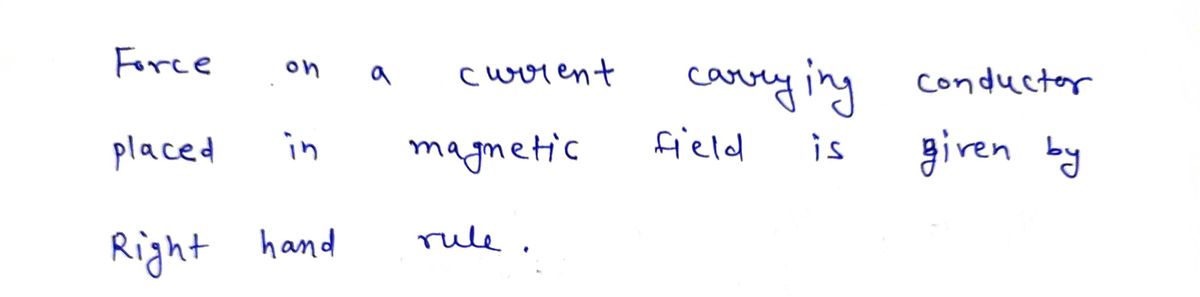 Force on a current carrying conductor
placed in magnetic field is given by
Right hand rule.